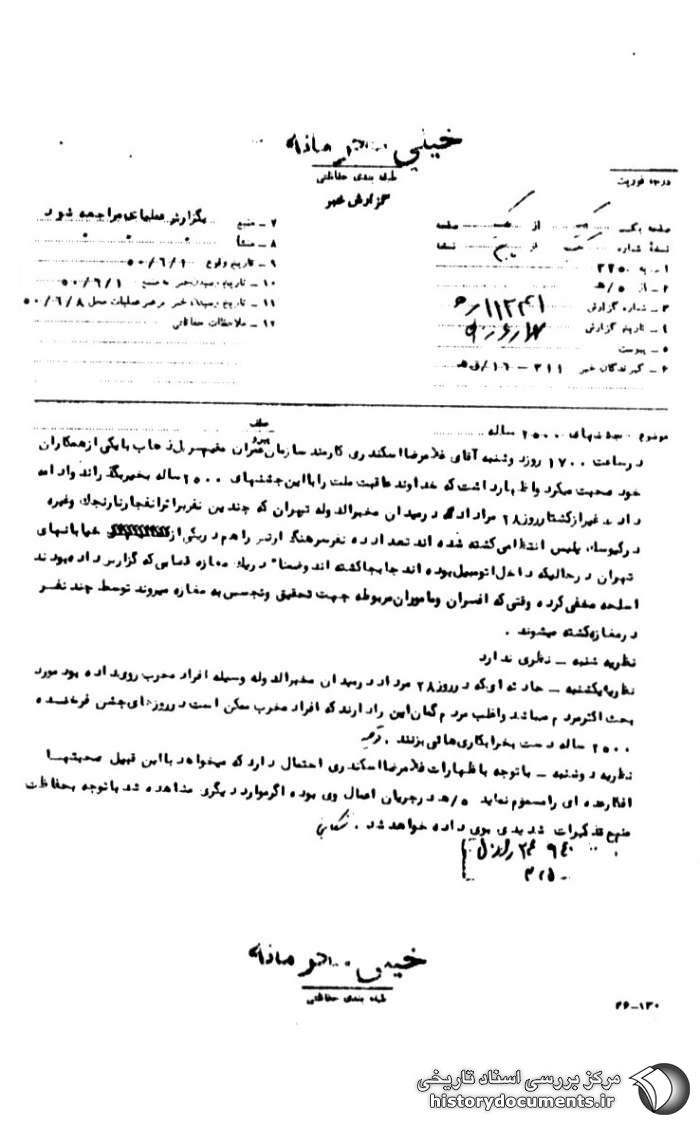 خیلی محرمانه
طبقه بندی حفاظتی
گزارش خبر
درجه فوریت
صفحه یک از یک صفحه
نسخه شماره یک از پنج نسخه
۱ - به ۳۲۵
۲ - از ۵/هـ
۳ - شماره گزارش ۱۱۲۴۱/۵هـ
۴ - تاریخ گزارش
۵ - پیوست
۶ - گیرندگان خبر ۳۱۱ - ۱۶/ق هـ
۷ - منبع بگزارش عملیاتی مراجعه شود
۸ - منشأ
۹ - تاریخ وقوع ۵۰/۶/۱
۱۰ - تاریخ رسیدن خبر به منبع ۵۰/۶/۱
۱۱ - تاریخ رسیدن خبر برهبر عملیات محل ۵۰/۶/۸
۱۲ - ملاحظات حفاظتی
موضوع : جشنهای ۲۵۰۰ ساله
عطف
پیرو
در ساعت ۱۷۰۰ روز دوشنبه آقای غلامرضا اسکندری کارمند سازمان عمران مقیم سرپل ذهاب با یکی از همکاران
خود صحبت میکرد و اظهار داشت که خداوند عاقبت ملت را با این جشنهای ۲۵۰۰ ساله بخیر بگذراند و ادامه
داد غیر از کشتار روز ۲۸ مرداد که در میدان مخبرالدوله تهران که چندین نفر بر اثر انفجار نارنجک وغیره
در کیوسک پلیس انتظامی کشته شده اند تعداد ده نفر سرهنگ ارتش را هم در یکی از خیابانهای
تهران در حالیکه داخل اتومبیل بوده اند جابجا کشته اند وضمناً در یک مغازه قصابی که گزارش داده بودند
اسلحه مخفی کرده وقتی که افسران ومأموران مربوطه جهت تحقیق وتجسس به مغازه میروند توسط چند نفر
در مغازه کشته میشوند .
نظریه شنبه - نظری ندارد
نظریه یکشنبه - حادثه ای که در روز ۲۸ مرداد در میدان مخبرالدوله وسیله افراد مخرب روی داده بود مورد
بحث اکثر مردم میباشد واغلب مردم گمان این را دارند که افراد مخرب ممکن است در روزهای جشن فرخنده
۲۵۰۰ ساله دست بخرابکاری هائی بزنند .
نظریه دوشنبه - با توجه باظهارات غلامرضا اسکندری احتمال دارد که میخواهد با این قبیل صحبتها
افکار عده ای را مسموم نماید ۵/هـ در جریان اعمال وی بوده اگر موارد دیگری مشاهده شد با توجه بحفاظت
منبع تذکرات شدیدی بوی داده خواهد شد .
خیلی محرمانه
طبقه بندی حفاظتی
۳۶-۱۳۰
مرکز بررسی اسناد تاریخی
historydocuments.ir